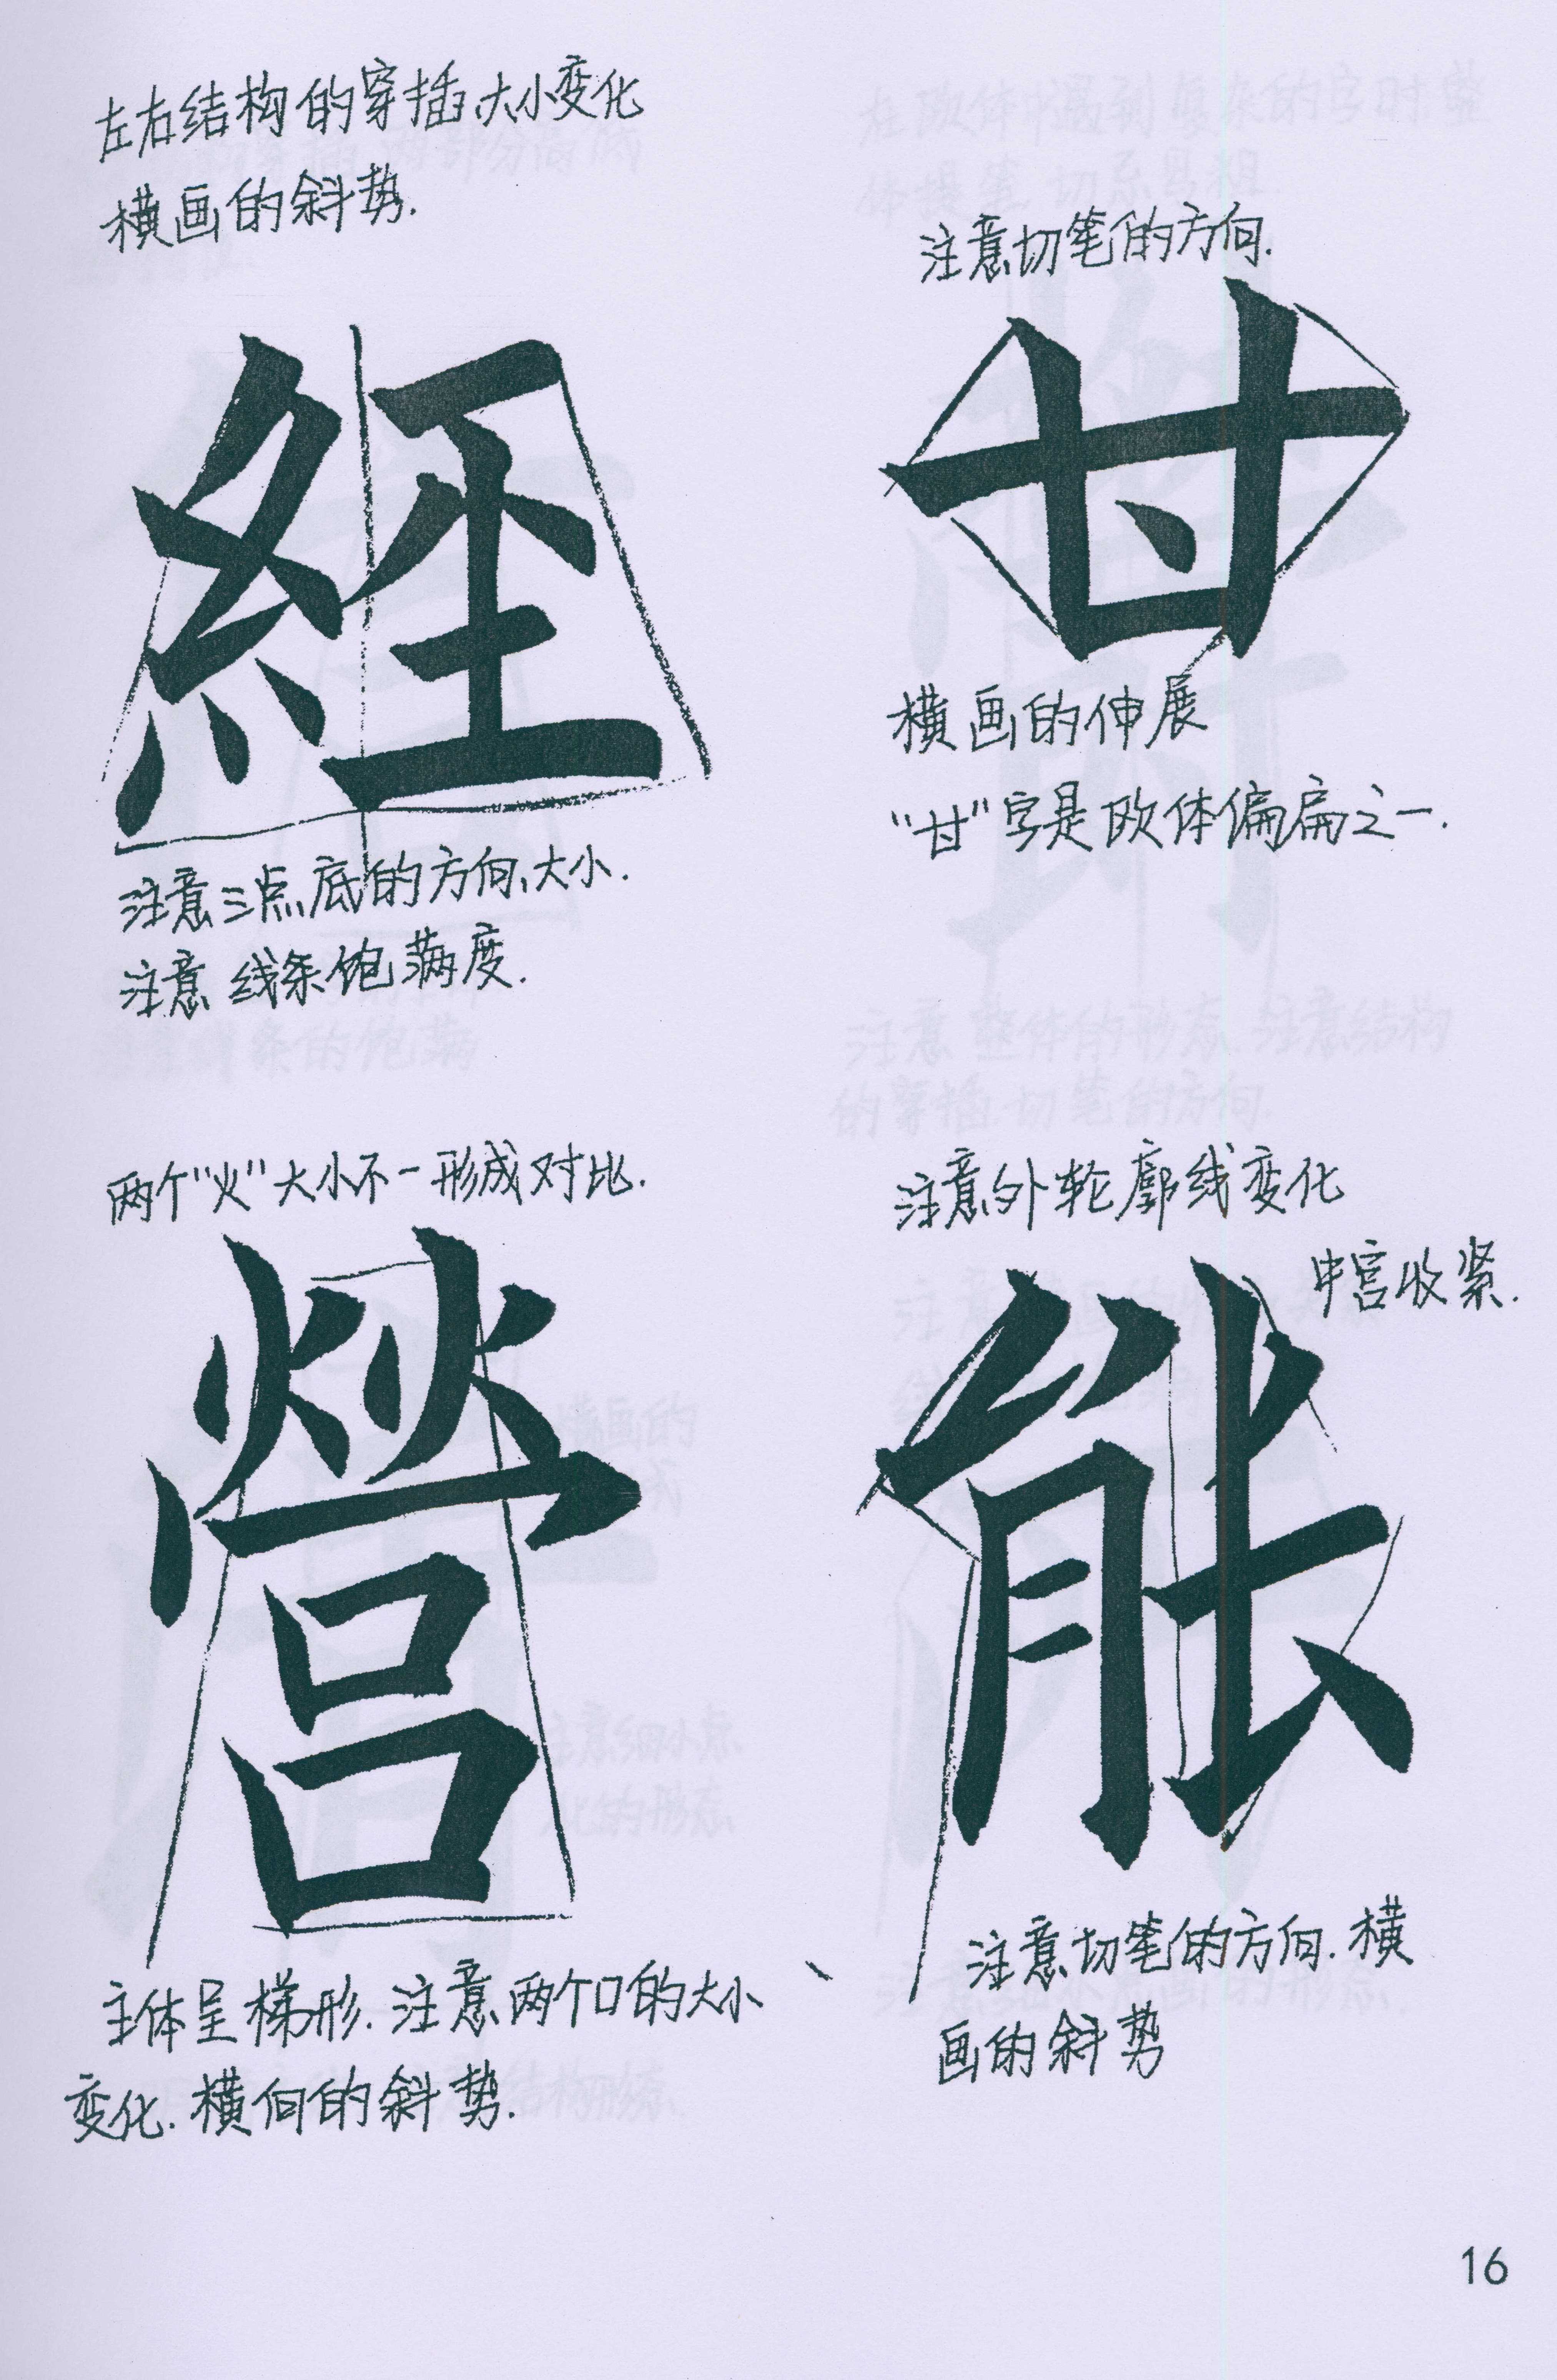 左右结构的穿插、大小变化
横画的斜势.
經
注意三点底的方向、大小.
注意线条饱满度.
注意切笔的方向.
甘
横画的伸展
“甘”字是欧体偏扁之一.
两个“火”大小不一形成对比.
營
主体呈梯形.注意两个口的大小
变化.横向的斜势.
注意外轮廓线变化
中宫收紧.
能
注意切笔的方向.横
画的斜势
16